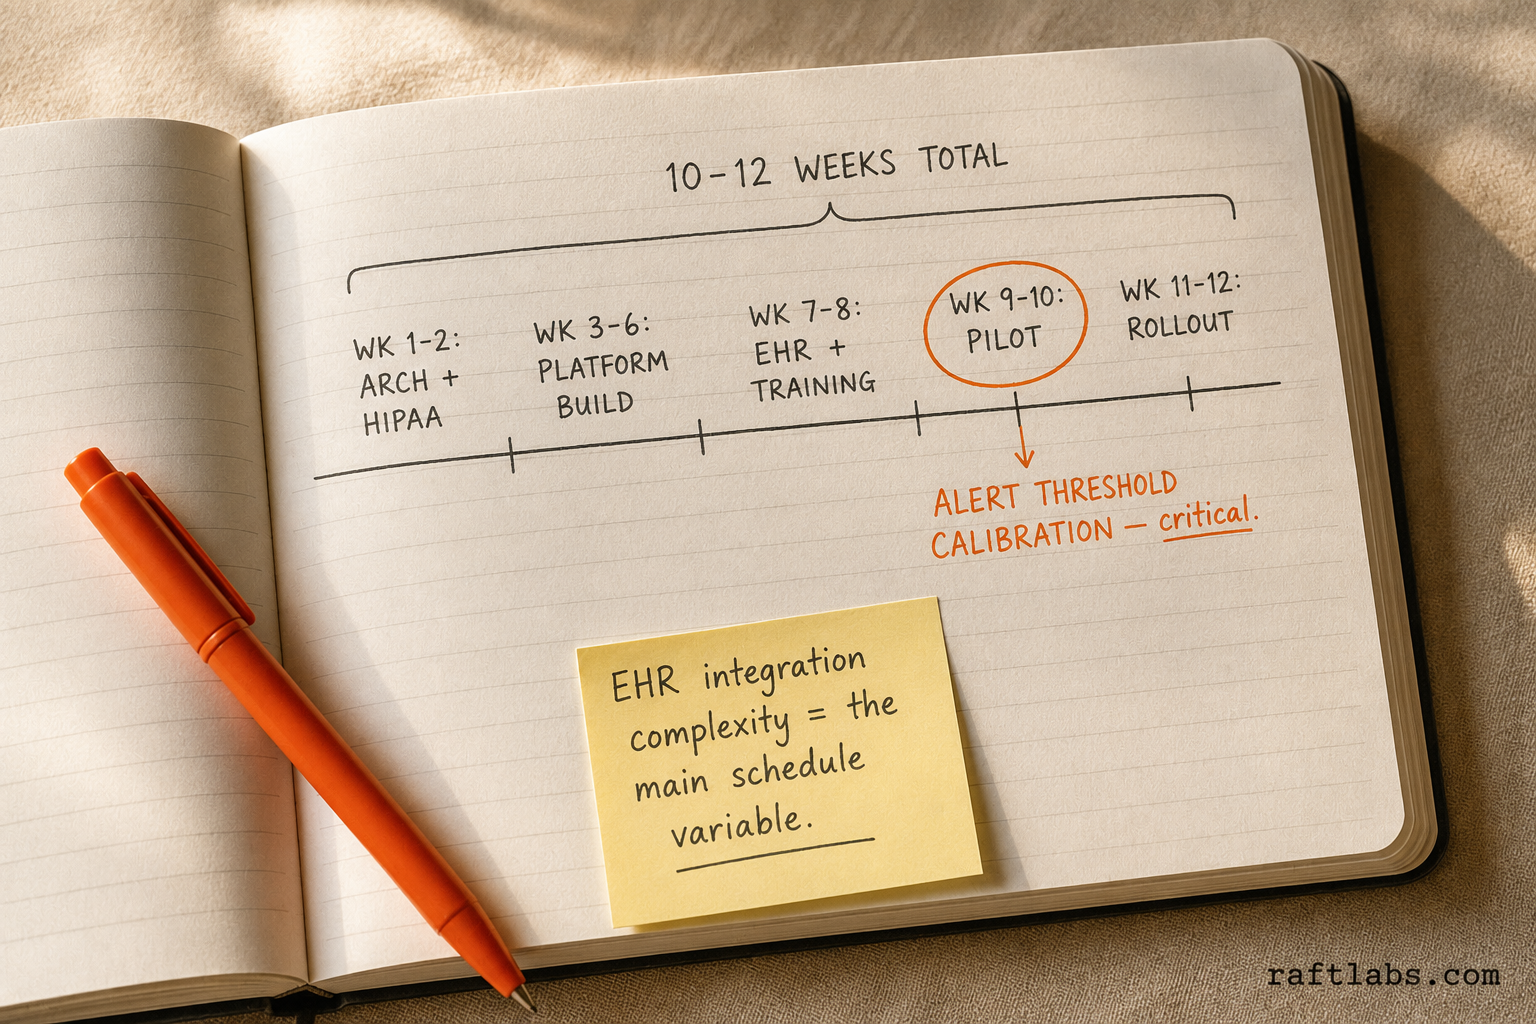 10-12 WEEKS TOTAL
WK 1-2:
ARCH +
HIPAA
WK 3-6:
PLATFORM
BUILD
WK 7-8:
EHR +
TRAINING
WK 9-10:
PILOT
WK 11-12:
ROLLOUT
ALERT THRESHOLD
CALIBRATION — critical.
EHR integration
complexity = the
main schedule
variable.
raftlabs.com